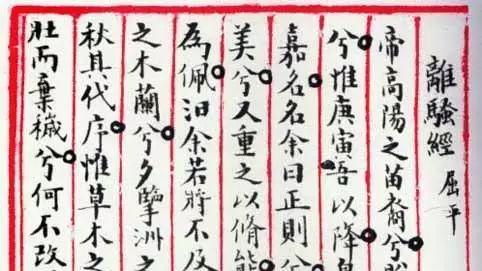 離騷經 屈平
帝高陽之苗裔兮
兮惟庚寅吾以降
嘉名名余曰正則兮
美兮又重之以脩能
為佩汩余若將不及
之木蘭兮夕擥洲之
秋其代序惟草木之
壯而棄穢兮何不改